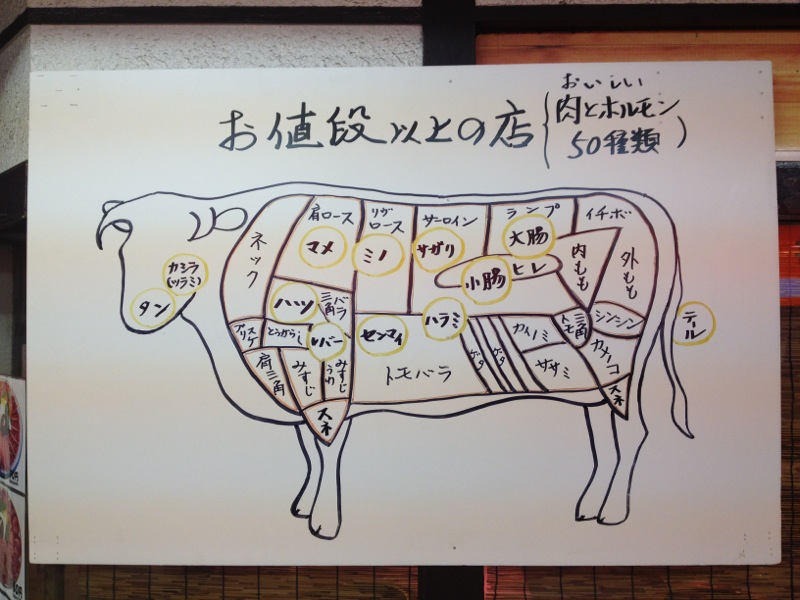 おいしい
お値段以上の店
肉とホルモン
50種類
ネック
肩ロース
リブ
ロース
サーロイン
ランプ
イチボ
カシラ
(ツラミ)
タン
マメ
ミノ
サガリ
大腸
小腸
ヒレ
内もも
外もも
ハツ
三角
バラ
ハラミ
シンシン
テール
ブリスケ
とうがらし
レバー
センマイ
カイノミ
トモ
三角
カメノコ
肩三角
みすじ
みすじ
うら
トモバラ
ゲタ
ゲタ
ササミ
スネ
スネ